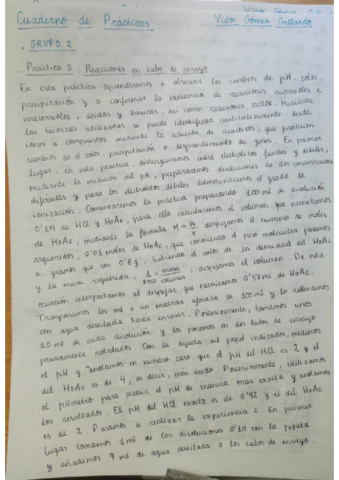 Cuaderno de Prácticas
Victor Gómez Gallardo
• GRUPO 2
- Práctica 3 : Reacciones en tubo de ensayo
En esta práctica aprenderemos a observar los cambios de pH, color,
precipitación y a confirmar la existencia de reacciones reversibles e
irreversibles, ácidas y básicas, así como reacciones redox. Mediante
las técnicas utilizadas se puede identificar cualitativamente desde
iones a compuestos mediante la adición de reactivos, que producen
cambios en el color, precipitación o desprendimiento de gases. En primer
lugar, en esta práctica, distinguiremos entre electrolitos fuertes y débiles,
mediante la medición del pH, prepararemos disoluciones de dos concentraciones
diferentes y para los electrolitos débiles determinaremos el grado de
ionización. Comenzaremos la práctica preparando 100 ml de disolución
0'1M de HCl y HAc, para ello calcularemos el volumen que necesitamos
de HAc, mediante la fórmula M = n/V despejamos el número de moles
requeridos, 0'01 moles de HAc, que convirtiendo el peso molecular pasamos
a gramos que son 0'6 g. Sabiendo el valor de la densidad del HAc
y la masa requerida, d = masa/volumen despejamos el volumen. De esta
ecuación interpretamos al despejar que necesitamos 0'57 ml de HAc.
Transpasamos los ml a un matraz aforado de 100 ml y lo rellenamos
con agua destilada hasta enrasar. Posteriormente, tomamos unos
10 ml de cada disolución y los ponemos en dos tubos de ensayo
previamente rotulados. Con la ayuda del papel indicador, medimos
el pH y anotamos en nuestro caso que el pH del HCl es 2 y el
del HAc es de 4, es decir, más ácido. Posteriormente, utilizamos
el pHmetro para medir el pH de manera más exacta y anotamos
los resultados. El pH del HCl exacto es de 0'92 y el del HAc
es de 2. Pasamos a realizar la experiencia 2. En primer
lugar tomamos 1 ml de las disoluciones 0'1M con la pipeta
y añadimos 9 ml de agua destilada a los tubos de ensayo.